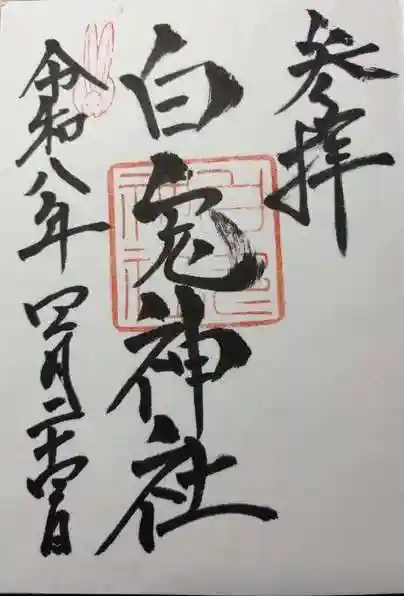 参拝
白兎神社
令和八年四月二十四日